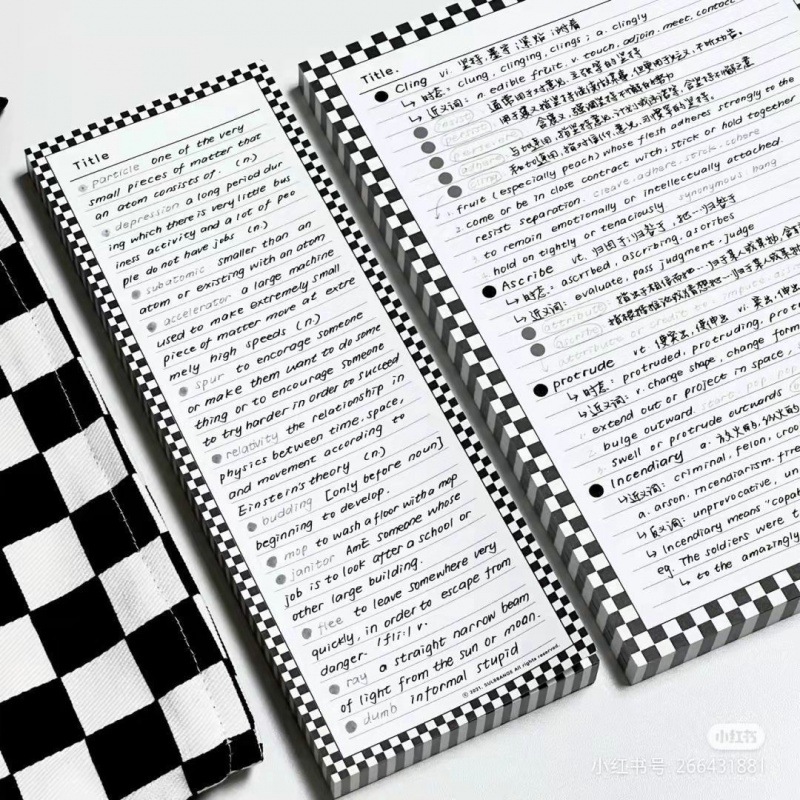 Title
particle one of the very
small pieces of matter that
an atom consists of. (n.)
depression a long period dur
ing which there is very little bus
iness activity and a lot of peo
ple do not have jobs (n.)
subatomic smaller than an
atom or existing with an atom
accelerator a large machine
used to make extremely small
piece of matter move at extre
mely high speeds (n.)
spur to encorage someone
or make them want to do some
thing or to encourage someone
to try harder in order to succeed
relativity the relationship in
physics between time, space,
and movement according to
Einstein's theory (n.)
budding [only before noun]
beginning to develop.
mop to wash a floor with a mop
janitor AmE someone whose
job is to look after a school or
other large building.
flee to leave somewhere very
quickly, in order to escape from
danger. /fli:/ v.
ray a straight narrow beam
of light from the sun or moan.
dumb informal stupid
© 2021. SULBBANGS All rights reserved.
Title.
Cling vi. 坚持,墨守;紧贴;附着
↳ 时态: clung, clinging, clings; a. clingly
↳ 近义词: n. edible fruit. v. touch, adjoin, meet, contact
insist
persist
persevere
adhere
cling
fruit (especially peach) whose flesh adheres strongly to the
come or be in close contact with; stick or hold together
resist separation. cleave. adhare. stick. cohere
to remain emotionally or intellectually attached.
hold on tightly or tenaciously synonymous: hang
Ascribe vt. 归因于;归咎于,把…归咎于
↳ 时态: ascrbed, ascrbring, ascribes
↳ 近义词: evaluate, pass judgment, judge
attribute:
ascribe:
attribute or credit to. impute
protrude vt 使突出,使伸出 vi. 突出,伸出
↳ 时态: protruded, protruding,
↳ 近义词: v. change shape, change form
extend out or project in space,
bulge outward.
swell or protrude outwards
Incendiary a. 放火的,
↳ 近义词: criminal, felon, croo
a. arson, incendiarism, fire
↳ 反义词: unprovocative, un
↳ Incendiary means "capa
eg. The soldiers were t
↳ to the amazingly
小红书
小红书号 266431881